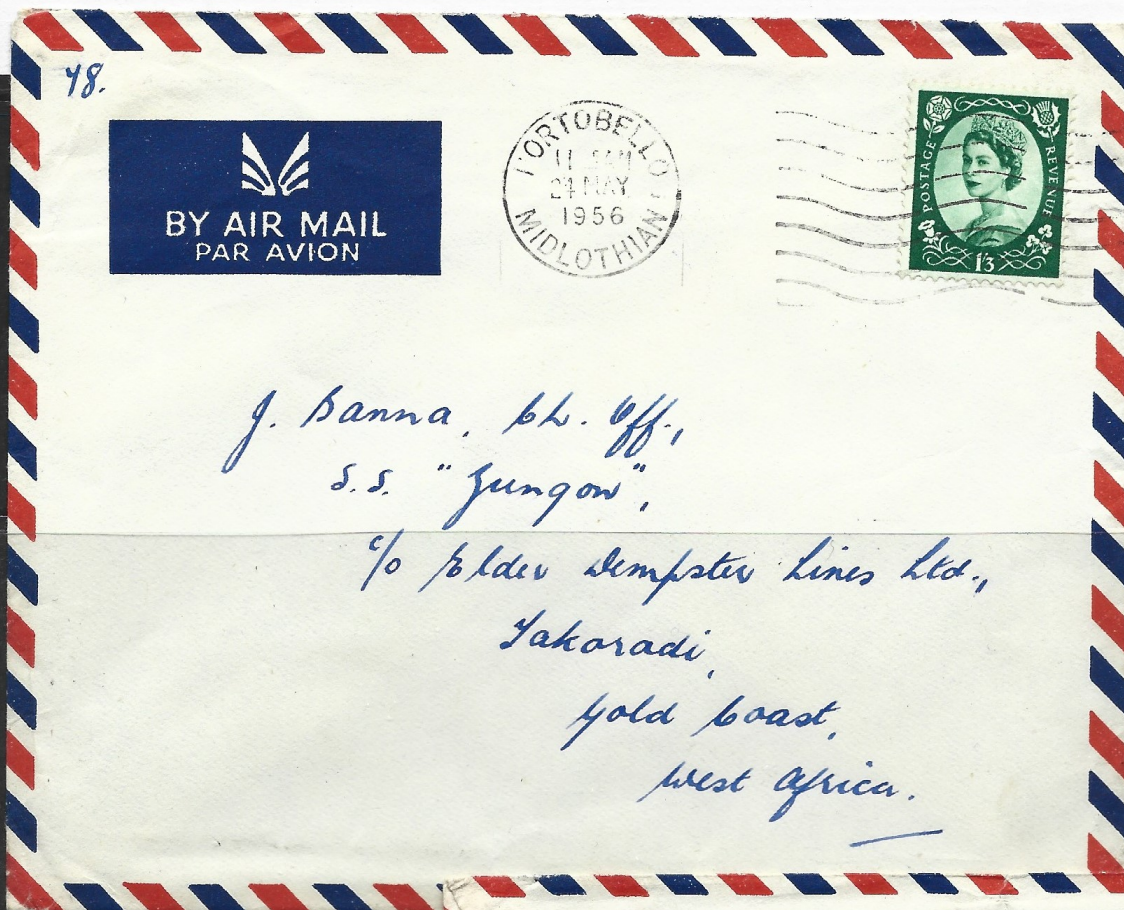 48.
BY AIR MAIL
PAR AVION
PORTOBELLO
11 AM
24 MAY
1956
MIDLOTHIAN
POSTAGE
REVENUE
1/3
J. Banna, Ch. Off.,
S.S. "Zungon",
c/o Elder Dempster Lines Ltd.,
Takoradi,
Gold Coast,
West Africa.